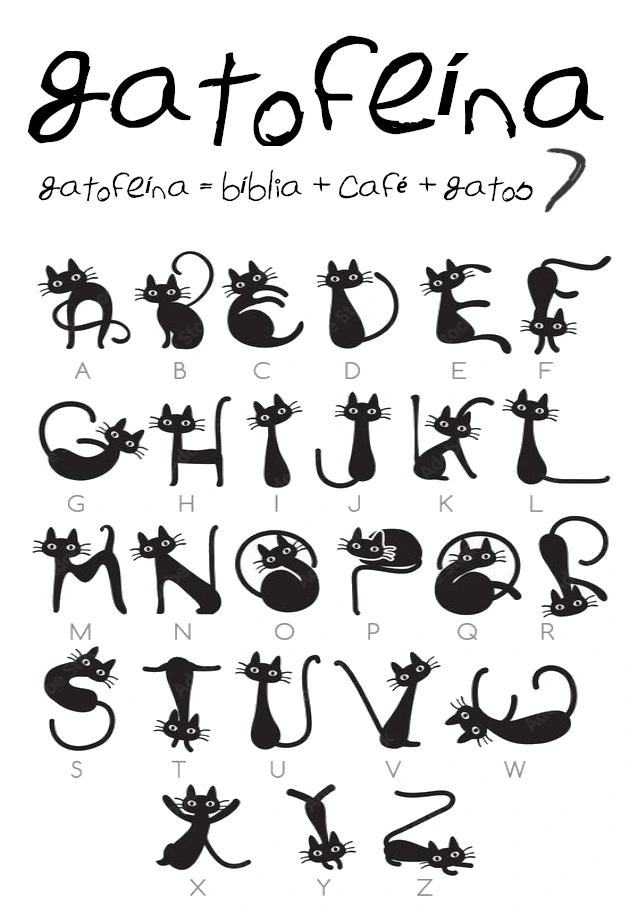 gatofeína
gatofeína = bíblia + Café + gatos
A B C D E F
G H I J K L
M N O P Q R
S T U V W
X Y Z